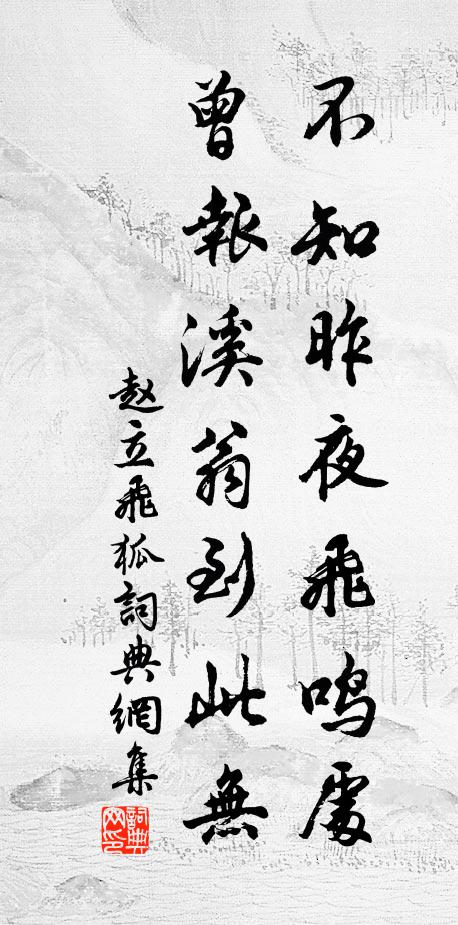 不知昨夜飛鳴處
曾報溪翁到此無
赵立飛狐詞典網集
詞典
网印